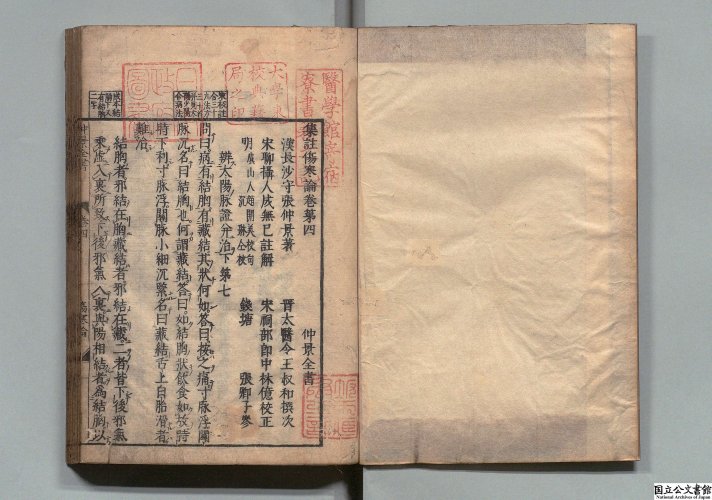 集註傷寒論卷第四
仲景全書
漢長沙守張仲景著
晉太醫令王叔和撰次
宋聊攝人成無已註解
宋祠部郎中林億校正
明虞山人趙開美校句
沈琳仝校
錢塘
張卿子參
辨太陽脉證并治下第七
問曰病有結胸有藏結其狀何如答曰按之痛寸脉浮關
脉沉名曰結胸也何謂藏結答曰如結胸狀飲食如故時
時下利寸脉浮關脉小細沉緊名曰藏結舌上白胎滑者
難治
結胸者邪結在胸藏結者邪結在藏二者皆下後邪氣
乘虛入裏所致下後邪氣入裏與陽相結者爲結胸以
仲景全書
卷四
醫學館
寮書
大學東
校典籍
局之印
国立公文書館
National Archives of Japan